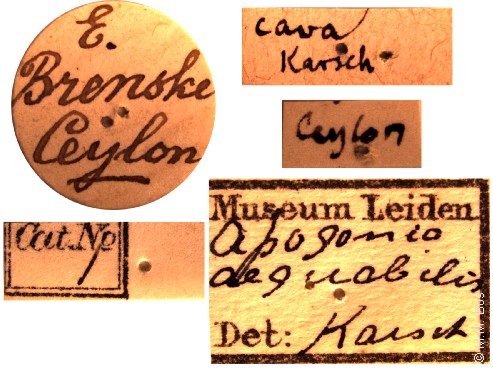 E.
Brenske
Ceylon
cava
Karsch
Ceylon
Cat.No
Museum Leiden
Apogonia
aequabilis
Det: Karsch